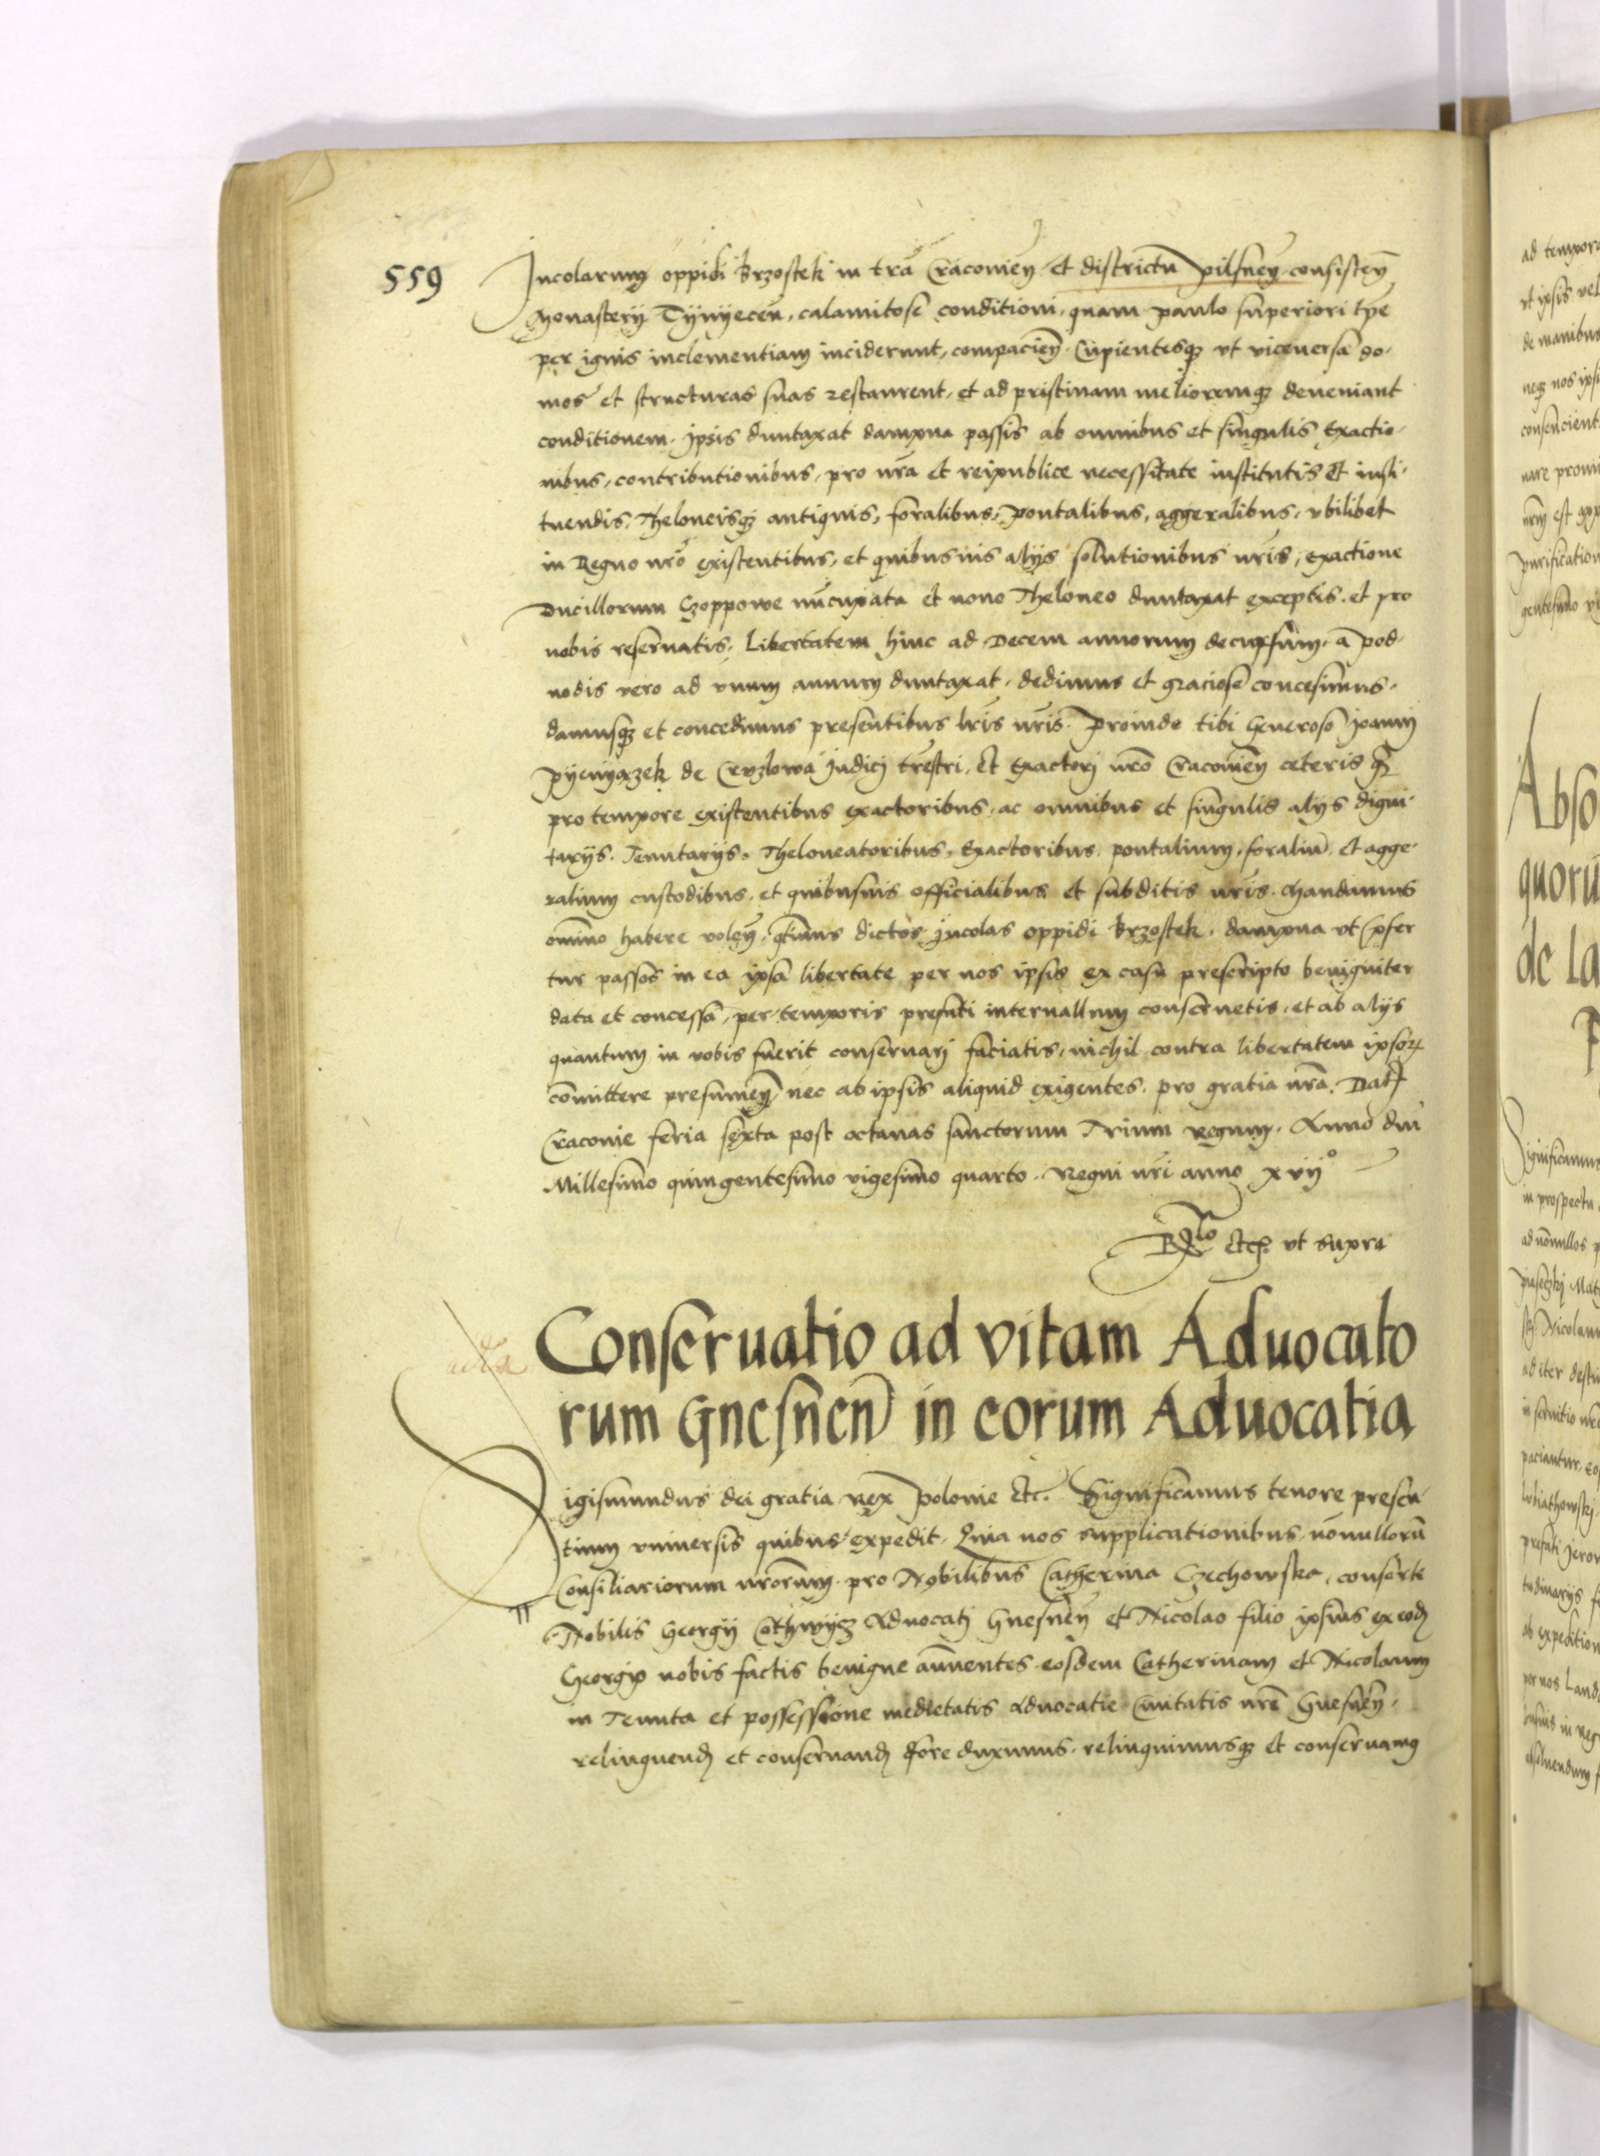 559
Incolarum oppidi Brzostek in tra Cracovien et districtu pilsnen consisten
Monasterij Tÿnÿecen, calamitose conditioni, quam paulo superiori tpe
per ignis inclementiam inciderunt, compacien Cupientesq vt viceuersa do-
mos et structuras suas restaurent, et ad pristinam melioremq deueniant
conditionem. Ipsis duntaxat dampna passis ab omnibus et singulis Exactio-
nibus, contributionibus, pro nra et reipublice necessitate institutis et insti-
tuendis, Theloneisq antiquis, foralibus, pontalibus, aggeralibus, vbilibet
in Regno nro existentibus, et quibusuis alijs solutionibus nris, exactione
Ducillorum Czoppowe nucupata et nouo Theloneo duntaxat exceptis, et pro
nobis reseruatis, Libertatem hinc ad Decem annorum decursum, a pod-
uodis vero ad vnum annum duntaxat, dedimus et graciose concessimus,
damusq et concedimus presentibus lris nris. Proinde tibi Generoso Joanni
Pÿenÿązek de Cruzlowa Judici trestri, et Exactori nro Cracouien ceteris q
pro tempore existentibus exactoribus, ac omnibus et singulis alijs digni-
tarijs, Tenutarijs, Theloneatoribus, Exactoribus, pontalium, foraliu, et agge-
ralium custodibus, et quibusuis officialibus et subditis nris, Mandamus
omino habere volen, qtinus dictos Incolas oppidi Brzostek, dampna vt Prefer
tur passos in ea ipsa libertate per nos ipsis ex casu prescripto benigniter
data et concessa, per temporis prefati interuallum conseruetis, et ab alijs
quantum in vobis fuerit conseruari faciatis, nichil contra libertatem ipsor
comittere presumen, nec ab ipsis aliquid exigentes, pro gratia nra. Dat
Cracouie feria sexta post octauas sanctorum Trium Regum, Anno dni
Millesimo quingentesimo vigesimo quarto. Regni nri anno xvijº
Rlo etc. vt supra
Conseruatio ad vitam Aduocato
rum Gnesnen in eorum Aduocatia
Sigismundus dei gratia Rex Polonie etc. Significamus tenore presen-
tium vniuersis quibus expedit. Quia nos supplicationibus nonulloru
Consiliariorum nrorum, pro Nobilibus Catherina Czechowska, consorte
Nobilis Georgij Cothwÿcz Aduocati Gnesnen et Nicolao filio ipsius ex eod
Georgio nobis factis benigne annuentes eosdem Catherinam et Nicolaum
in Tenuta et possessione medietatis Aduocatie Ciuitatis nre Gnesnen,
relinquend et conseruand fore duximus, relinquimusq et conseruamq